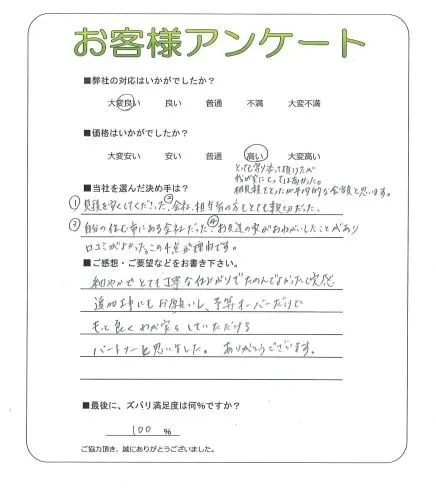 お客様アンケート
■弊社の対応はいかがでしたか?
大変良い 良い 普通 不満 大変不満
■価格はいかがでしたか?
大変安い 安い 普通 高い 大変高い
とても寄り添って頂けたが
我が家にとっては高かった。
相見積をとったが平均的な金額と思います。
■当社を選んだ決め手は?
①見積を安くしてくださった②会社、担当者の方もとても親切だった、
③自分の住む市にある会社だった④お友達の家がおねがいしたことがあり
口コミがよかったこの4点が理由です。
■ご感想・ご要望などをお書き下さい。
和やかでとても丁寧な仕上がりでたのんでよかったと実感
追加工事にもお願いし、予算オーバーだけど
もっと良くわが家をしていただける
パートナーと思いました。 ありがとうございます。
■最後に、ズバリ満足度は何%ですか?
100 %
ご協力頂き、誠にありがとうございました。